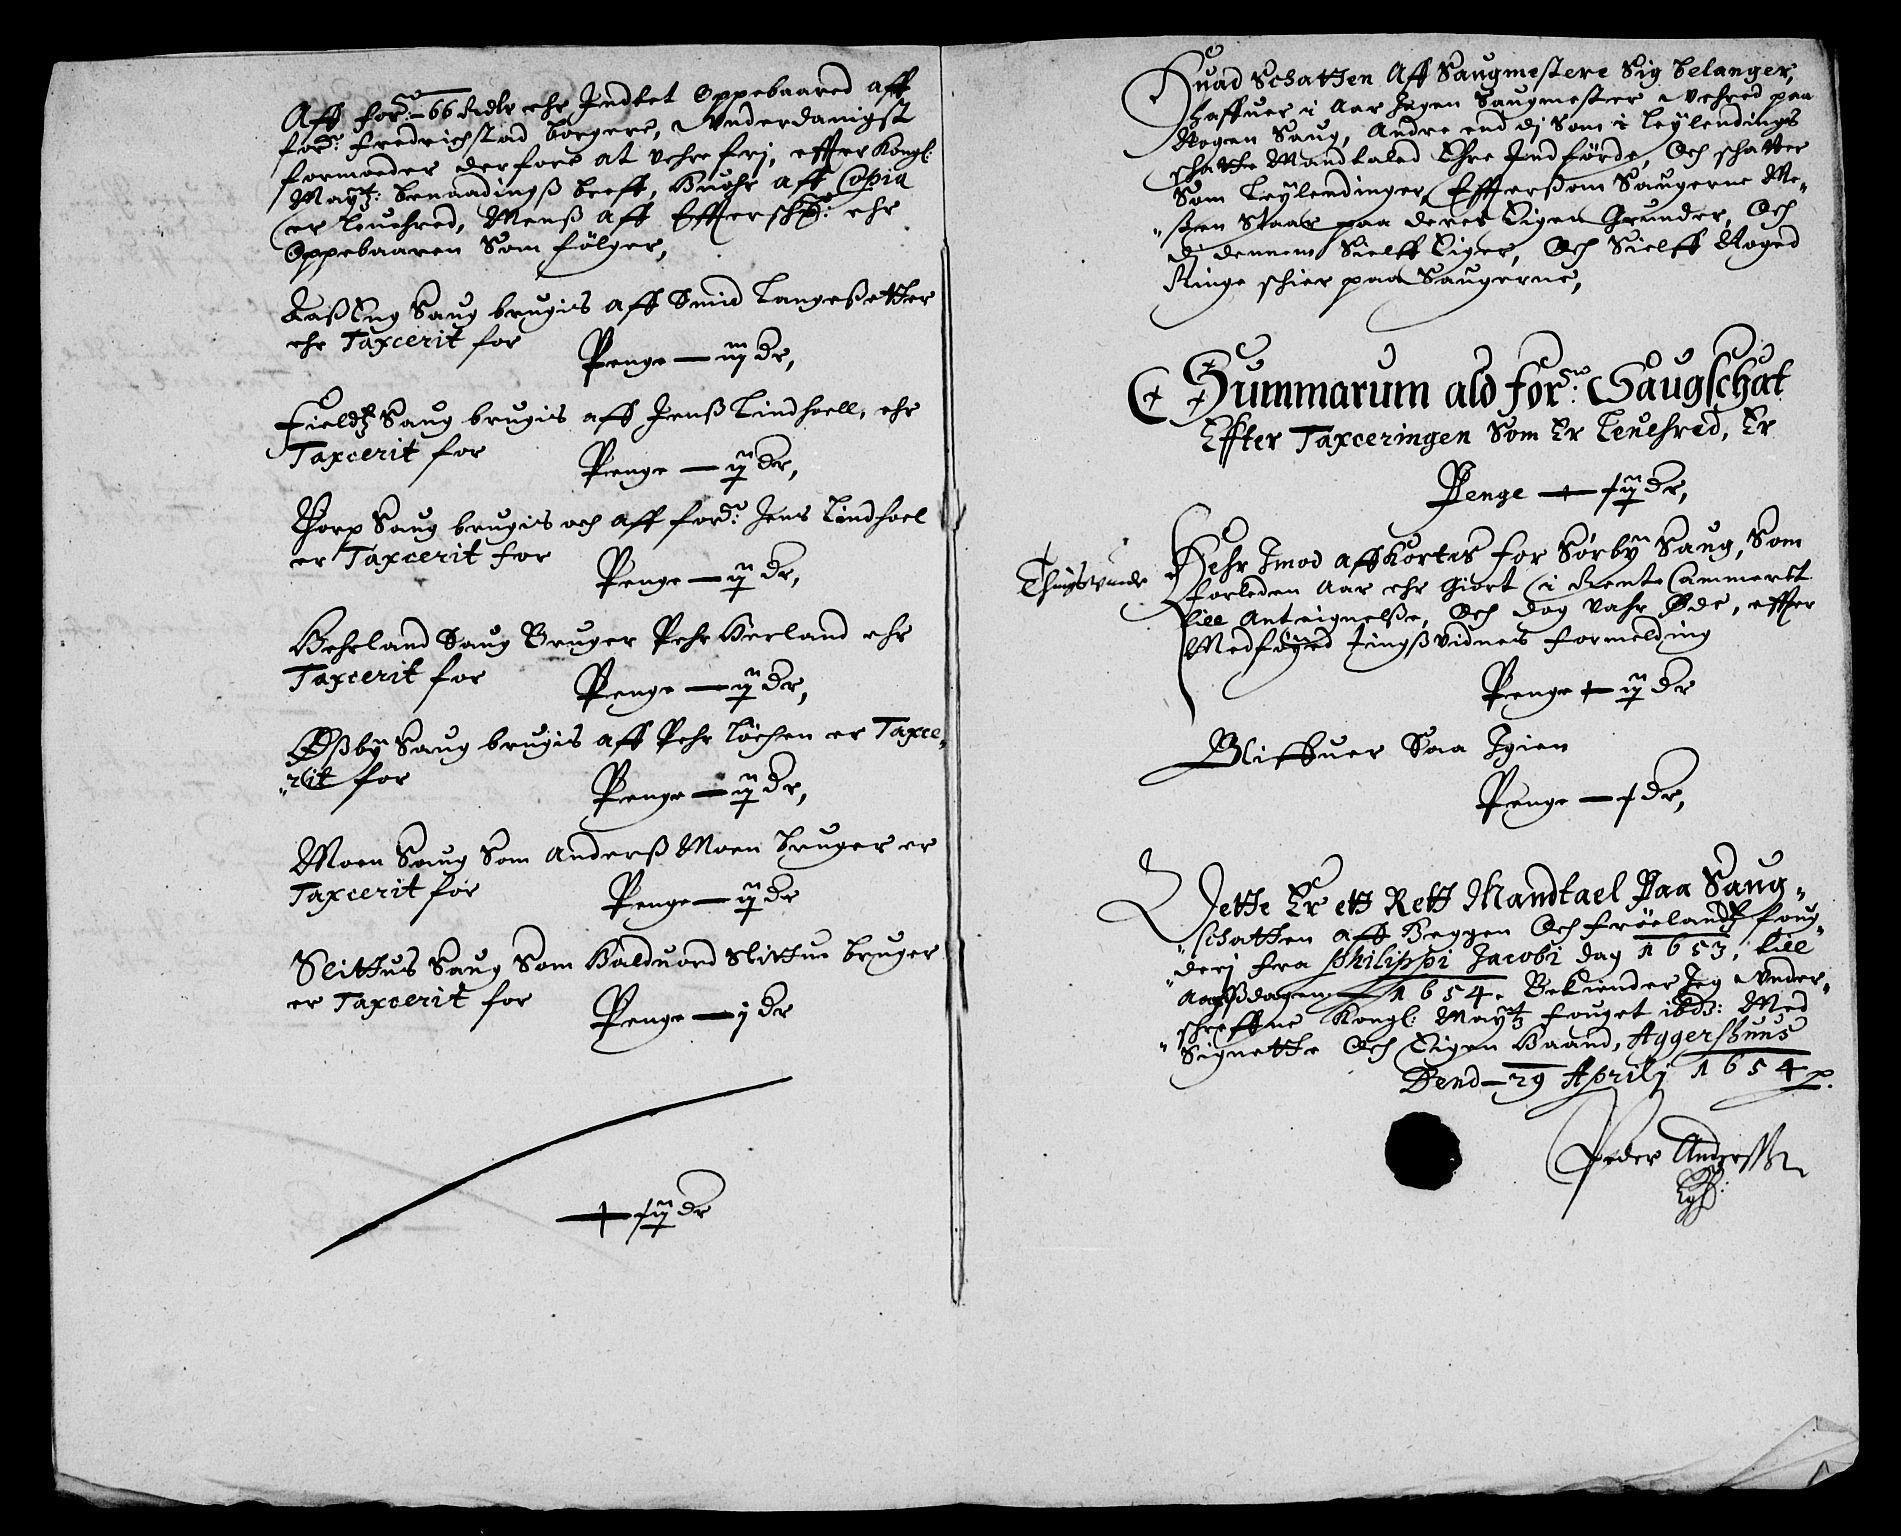 Aff for:ne 66 Rdlr ehr Indtet Oppebaared aff
ford: Fredrichstad borgere, Vnderdanigst
formoeder derfore at vehre frj, effter Kongl:
Maytz: benaadingß breff, Huohr aff Copia
er leuehred, Menß aff Effterschr: ehr
Oppebaaren Som følger,
Saug brugis aff Smid Langeßetter
ehr Taxcerit for
Penge — iij dr,
Fieldtz Saug brugis aff Jenß Lindhoell, ehr
Taxcerit for
Penge — ij dr,
Torp Saug brugis och aff ford: Jens Lindhoel
er Taxcerit for
Penge — ij dr,
Behrland Saug Bruger Pehr Berland ehr
Taxcerit for
Penge — ij dr,
Oßby Saug brugis aff Pehr Løchen er Taxce„
„rit for
Penge — ij dr,
Moen Saug Som Anderß Moen bruger er
Taxcerit for
Penge — ij dr
Slittus Saug Som Halduord Slittue bruger
er Taxcerit for
Penge — j dr
Huad Schatten Aff Saugmestere Sig belanger,
haffuer i Aar Ingen Saugmester Vehred paa
Nogen Saug, Andre end dj Som i Leylendings
schatte Mandtaled Ehre Indførde, Och schatter
Som Leylendinger, Effterßom Saugerne Me„
„sten Staar paa deres Eigen Grunder, Och
dj dennem Sielff Eiger, Och Sielff Noged
Ringe schier paa Saugerne,
Summarum ald for:ne Saugschat
Effter Taxceringen Som Er Leuehred, Er
Penge
Tingsvinde
Hehr Imod Affkortes for Sørby Saug, Som
forleden Aar ehr Giort i Rente Cammeret
till Anteignelße, Och dog vahr Øde, effter
Medføyed Tingßvidnes formelding
Penge — ij dr
Bliffuer Saa Igien
Penge
Dette Er ett Rett Mandtael Paa Saug„
„schatten aff Heggen Och Frøelandtz foug„
„derj fra Philippi Jacobi dag 1653, till
Aarßdagen — 1654. Bekiender Jeg Vnder„
schreffne Kongl: Maytz fouget ibd: Med
„Signette Och Eigen Haand, Aggershuus
Dend — 29 Aprilj 1654 p.
Peder Anderßen